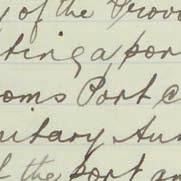 of the Provi
ting a por
oms Port c
nitary Au
f the port an